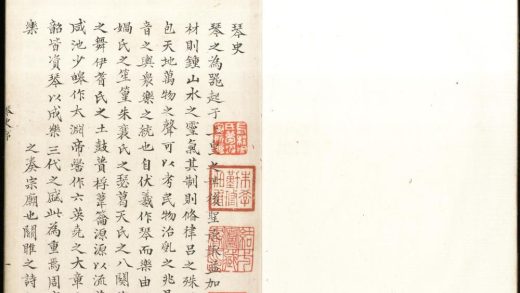 琴史
琴之為噐起于皇之後聖承承益加
材則鍾山水之靈氣其制則備律呂之殊
包天地萬物之聲可以考民物治亂之兆
音之輿衆樂之統也自伏羲作琴而樂由
媧氏之笙篁朱襄氏之瑟葛天氏之八闋
之舞伊耆氏之土鼓蕢桴葦籥源源以流
咸池少皞作大淵帝嚳作六英堯之大章
韶皆資琴以成樂三代之盛此為重焉周
樂 之奏宗廟也關雎之詩
琴史序